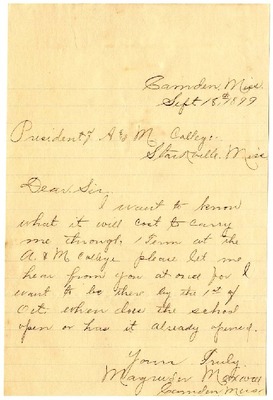 Camden, Miss.
Sept 18th 1899
President of A & M College
Starkville, Miss
Dear Sir,
I want to know
what it will cost to carry
me through 1 Term at the
A. & M College please let me
hear from you at once for I
want to be there by the 1st of
Oct. when does the school
open or has it already opened.
Yours Truly
Magruder
Camden Miss